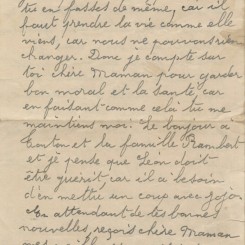 tu en fasses de même, car il
faut prendre la vie comme elle
vient, car nous ne pouvons rien
changer. Donc je compte sur
toi chère Maman pour garder
bon moral et la santé car
en faisant comme cela tu me
maintiens moi. Le bonjour à
Gaston et la famille Rambert
et je pense que Léon doit
être guérit, car il a besoin
d'en mettre un coup avec Jojo
En attendant de tes bonnes
nouvelles, reçois chère Maman